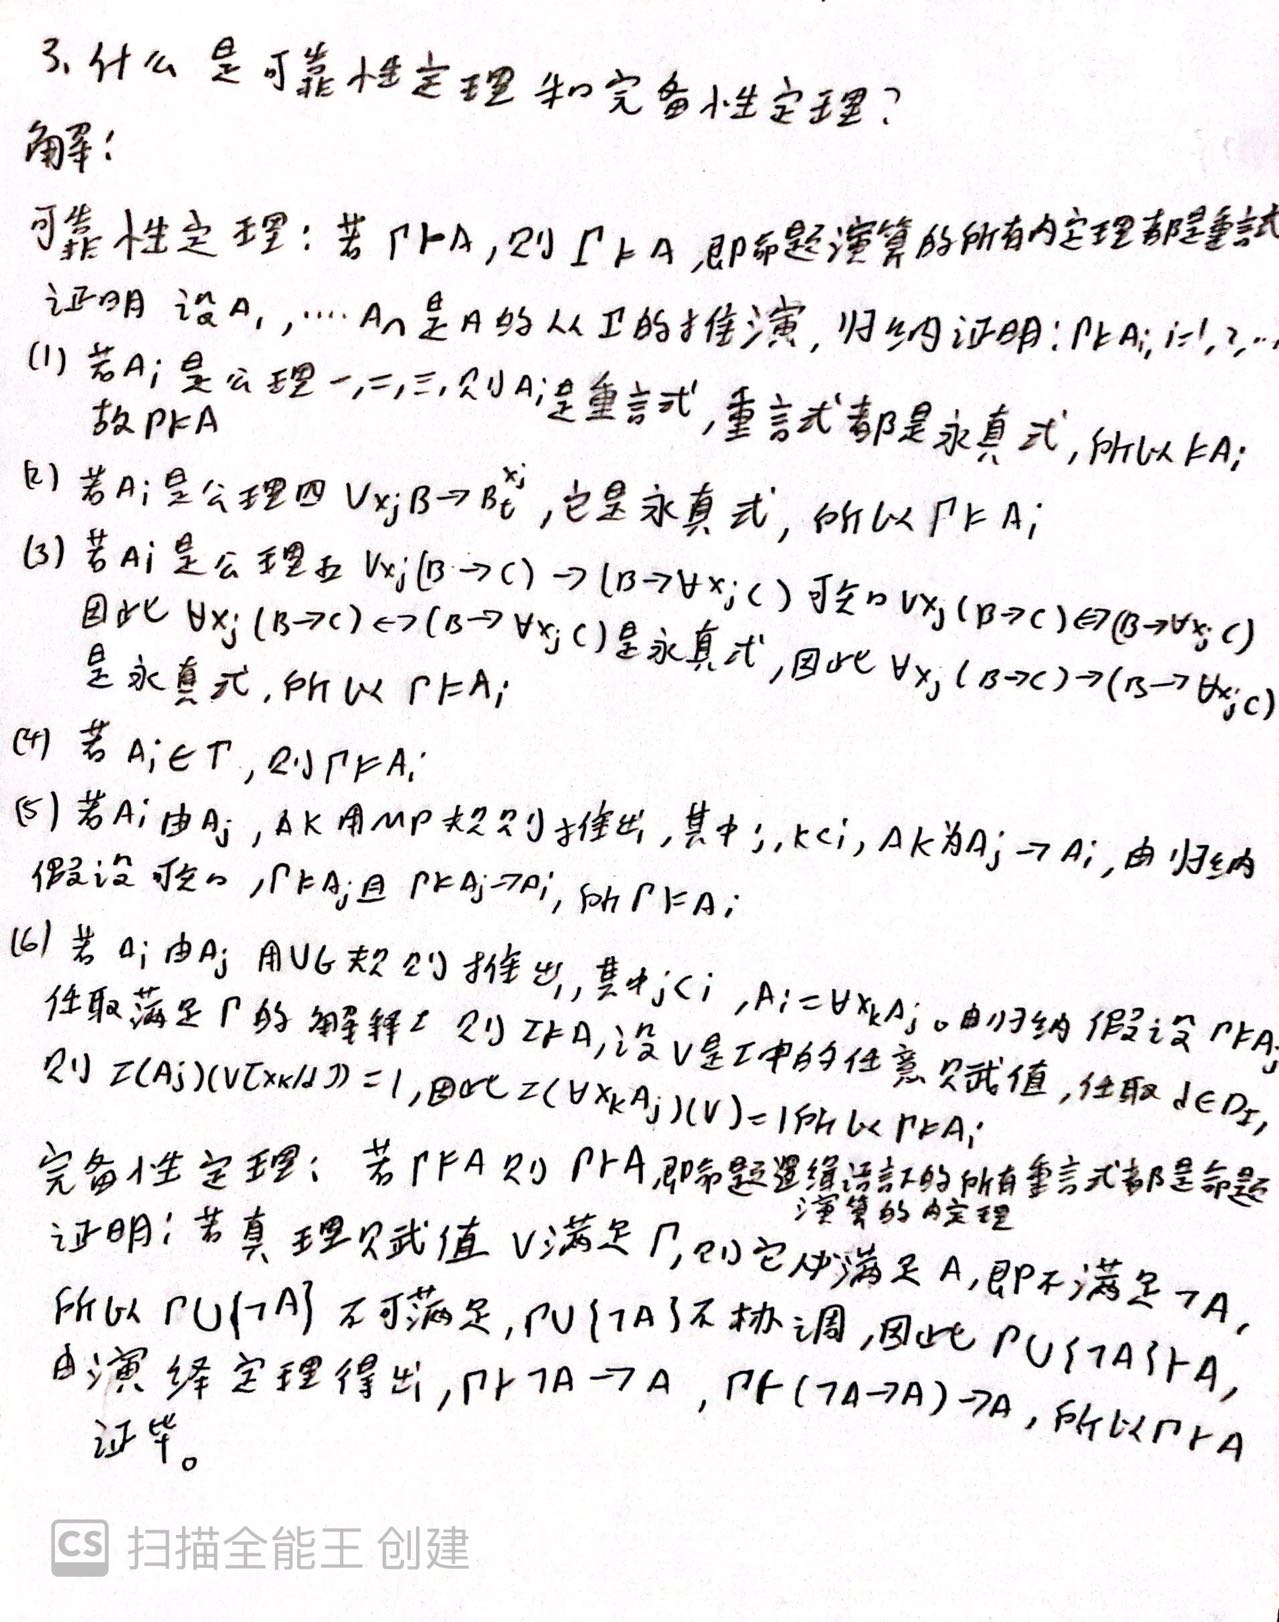 3、什么是可靠性定理和完备性定理?
解:
可靠性定理:若Γ⊢A,则Γ⊨A,即命题演算的所有内定理都是重言式
证明 设A₁,....Aₙ是A的从Γ的推演,归纳证明:Γ⊨Aᵢ,i=1,2,...
(1) 若Aᵢ是公理一,二,三,则Aᵢ是重言式,重言式都是永真式,所以⊨Aᵢ
故Γ⊨A
(2) 若Aᵢ是公理四 ∀xⱼB→Bₜ^xⱼ,它是永真式,所以Γ⊨Aᵢ
(3) 若Aᵢ是公理五 ∀xⱼ(B→C)→(B→∀xⱼC)可知∀xⱼ(B→C)⇔(B→∀xⱼC)
因此∀xⱼ(B→C)↔(B→∀xⱼC)是永真式,因此∀xⱼ(B→C)→(B→∀xⱼC)
是永真式,所以Γ⊨Aᵢ
(4) 若Aᵢ∈Γ,则Γ⊨Aᵢ
(5) 若Aᵢ由Aⱼ,AK用MP规则推出,其中j,K<i,AK为Aⱼ→Aᵢ,由归纳
假设可知,Γ⊨Aⱼ且Γ⊨Aⱼ→Aᵢ,所Γ⊨Aᵢ
(6) 若Aᵢ由Aⱼ用UG规则推出,其中j<i,Aᵢ=∀xₖAⱼ。由归纳假设Γ⊨Aⱼ
任取满足Γ的解释I则I⊨A,设V是I中的任意赋值,任取d∈D_I,
则I(Aⱼ)(V[xₖ/d])=1,因此I(∀xₖAⱼ)(V)=1所以Γ⊨Aᵢ
完备性定理:若Γ⊨A则Γ⊢A,即命题逻辑语言的所有重言式都是命题
演算的内定理
证明:若真理赋值V满足Γ,则它也满足A,即不满足¬A,
所以Γ∪{¬A}不可满足,Γ∪{¬A}不协调,因此Γ∪{¬A}⊢A,
由演绎定理得出,Γ⊢¬A→A,Γ⊢(¬A→A)→A,所以Γ⊢A
证毕。
CS 扫描全能王 创建